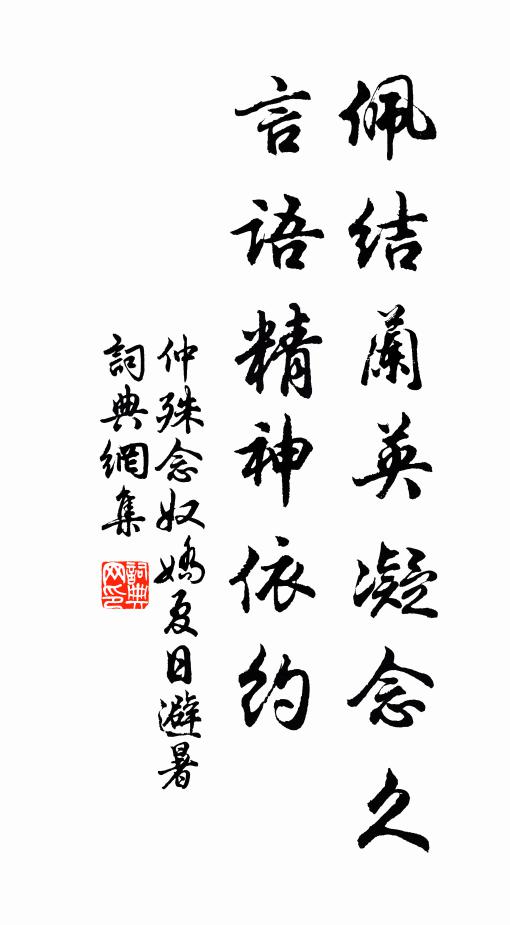 佩結蘭英凝念久
言語精神依約
仲殊念奴嬌夏日避暑
詞典網集
詞典
网印